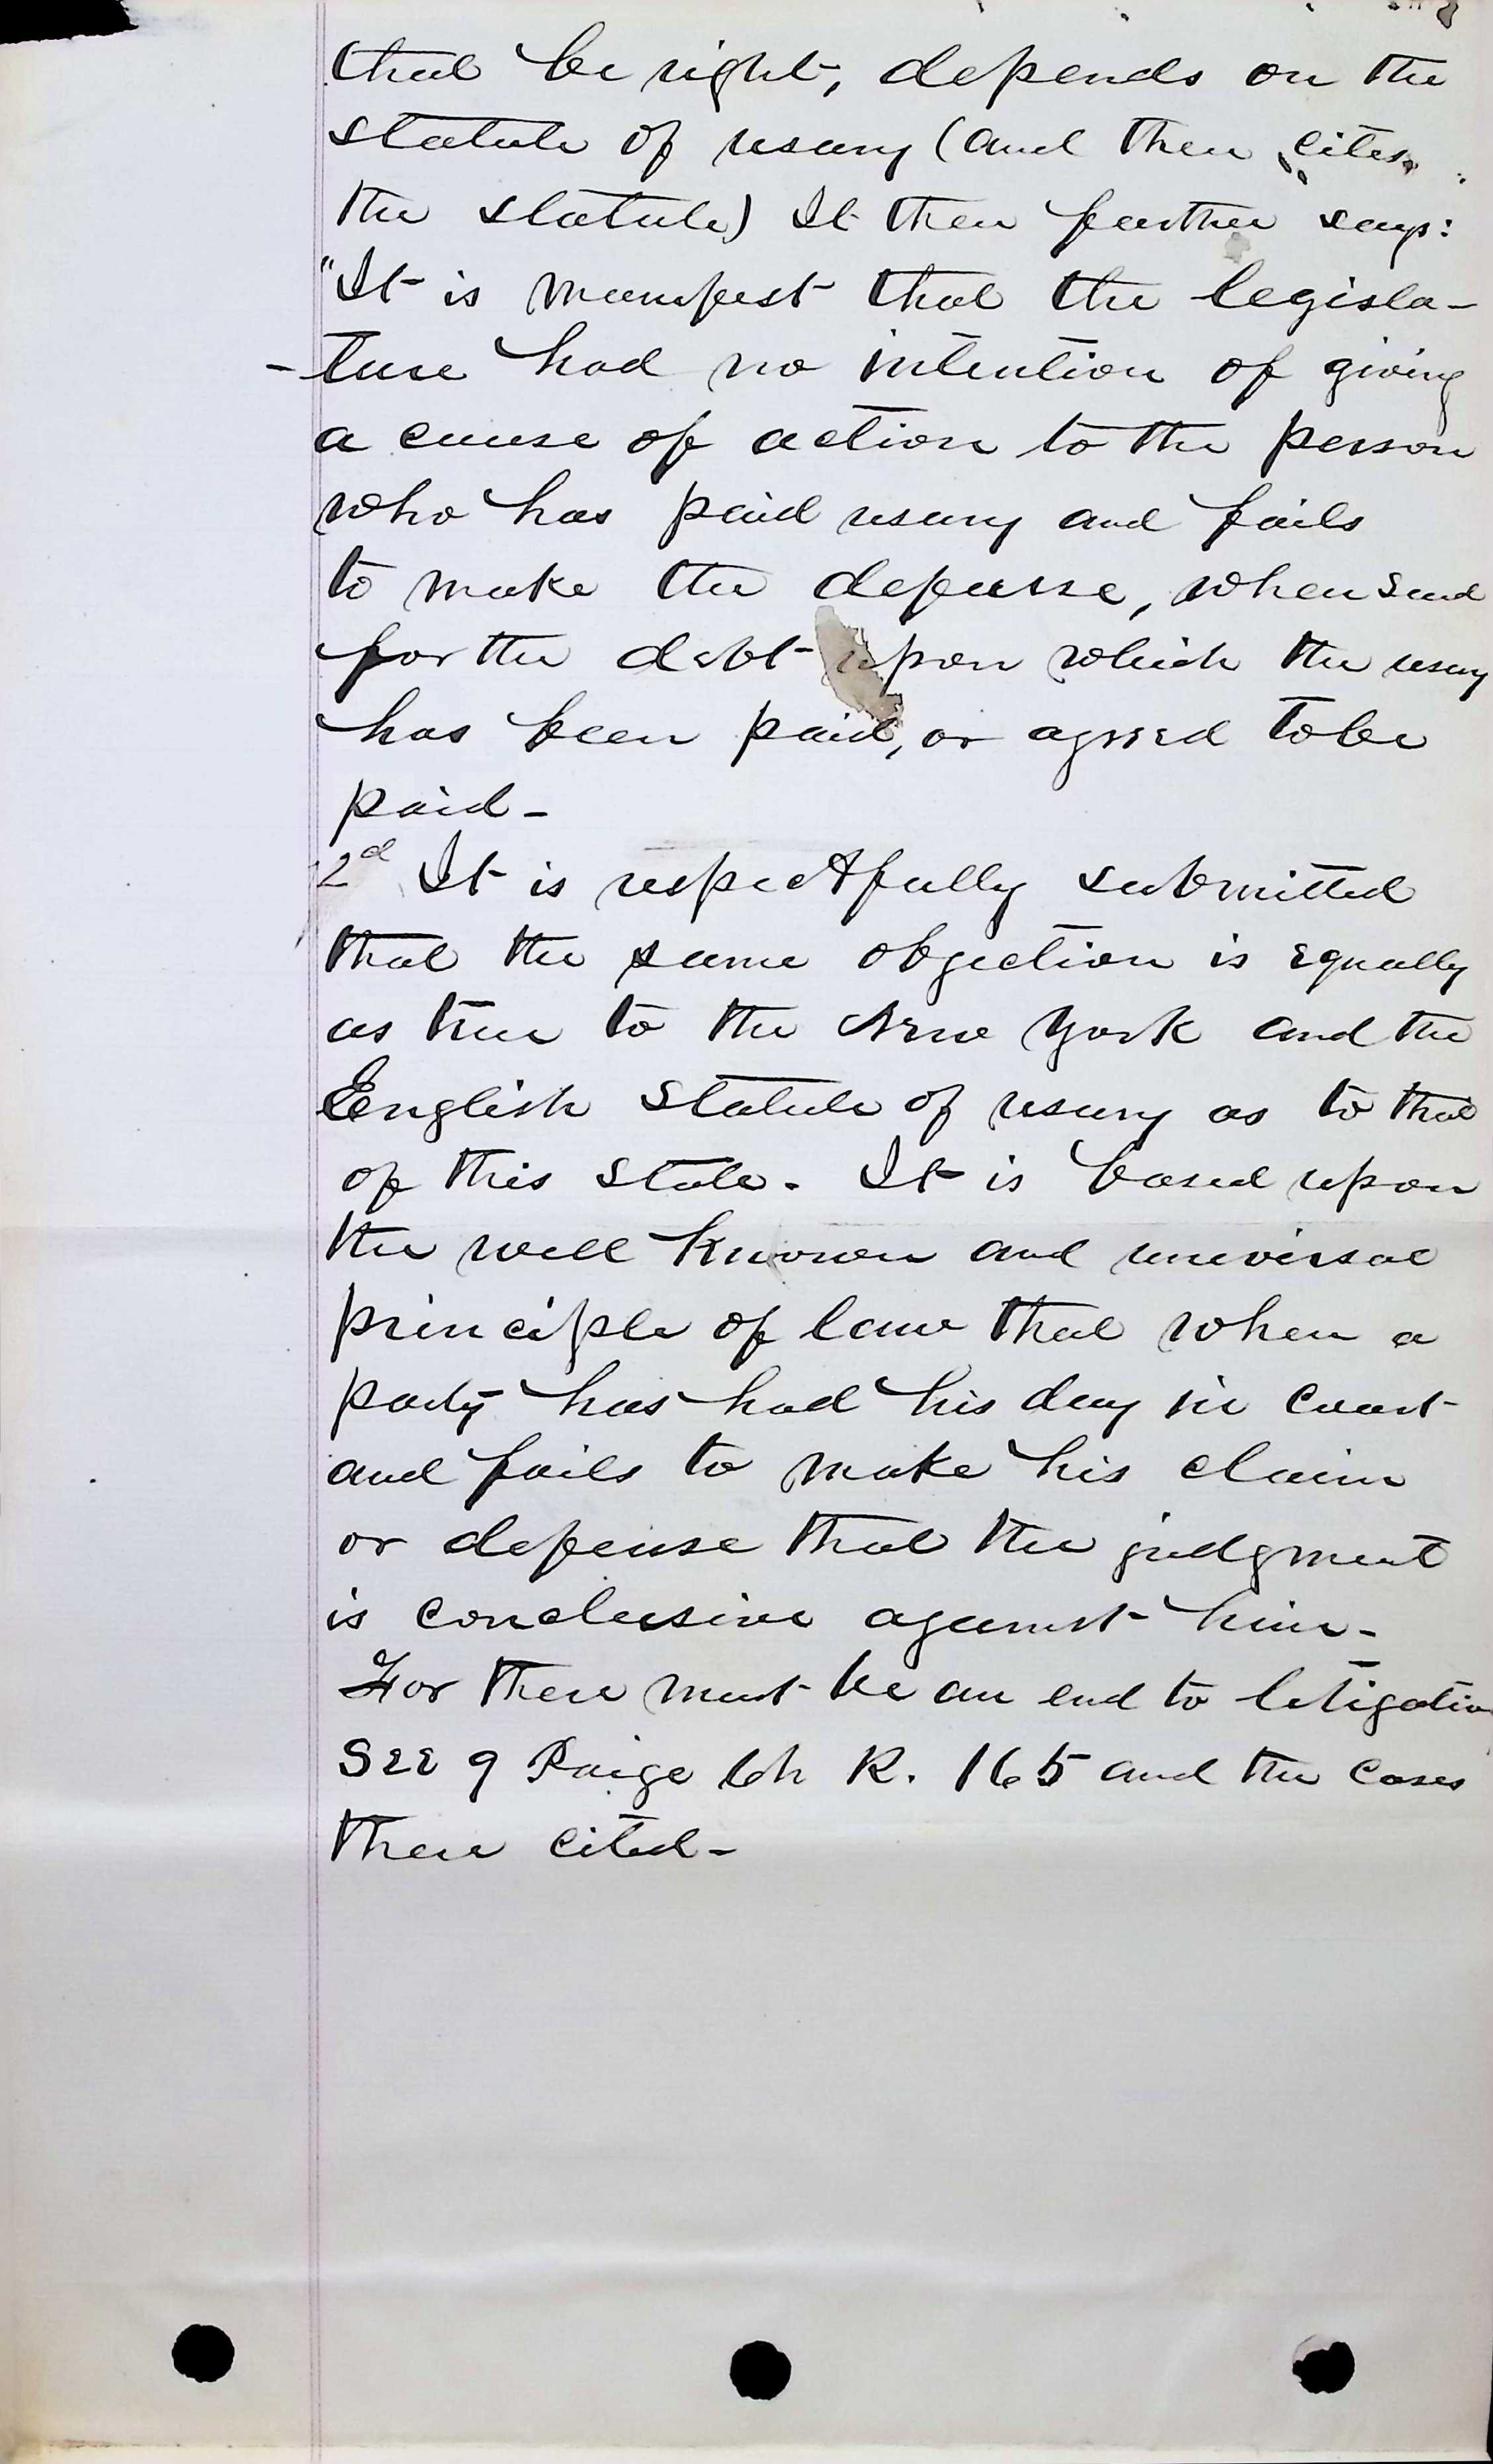 that be right, depends on the
statute of usury (and then cites
the statute) It then further says:
"It is manifest that the legisla-
-ture had no intention of giving
a cause of action to the person
who has paid usury and fails
to make the defense, when sued
for the debt upon which the usury
has been paid, or agreed to be
paid-
2d It is respectfully submitted
that the same objection is equally
as true to the New York and the
English Statute of usury as to that
of this State. It is based upon
the well known and universal
principle of law that when a
party has had his day in Court
and fails to make his claim
or defense that the judgment
is conclusive against him-
For there must be an end to litigation
See 9 Paige Ch R. 165 and the cases
there cited-